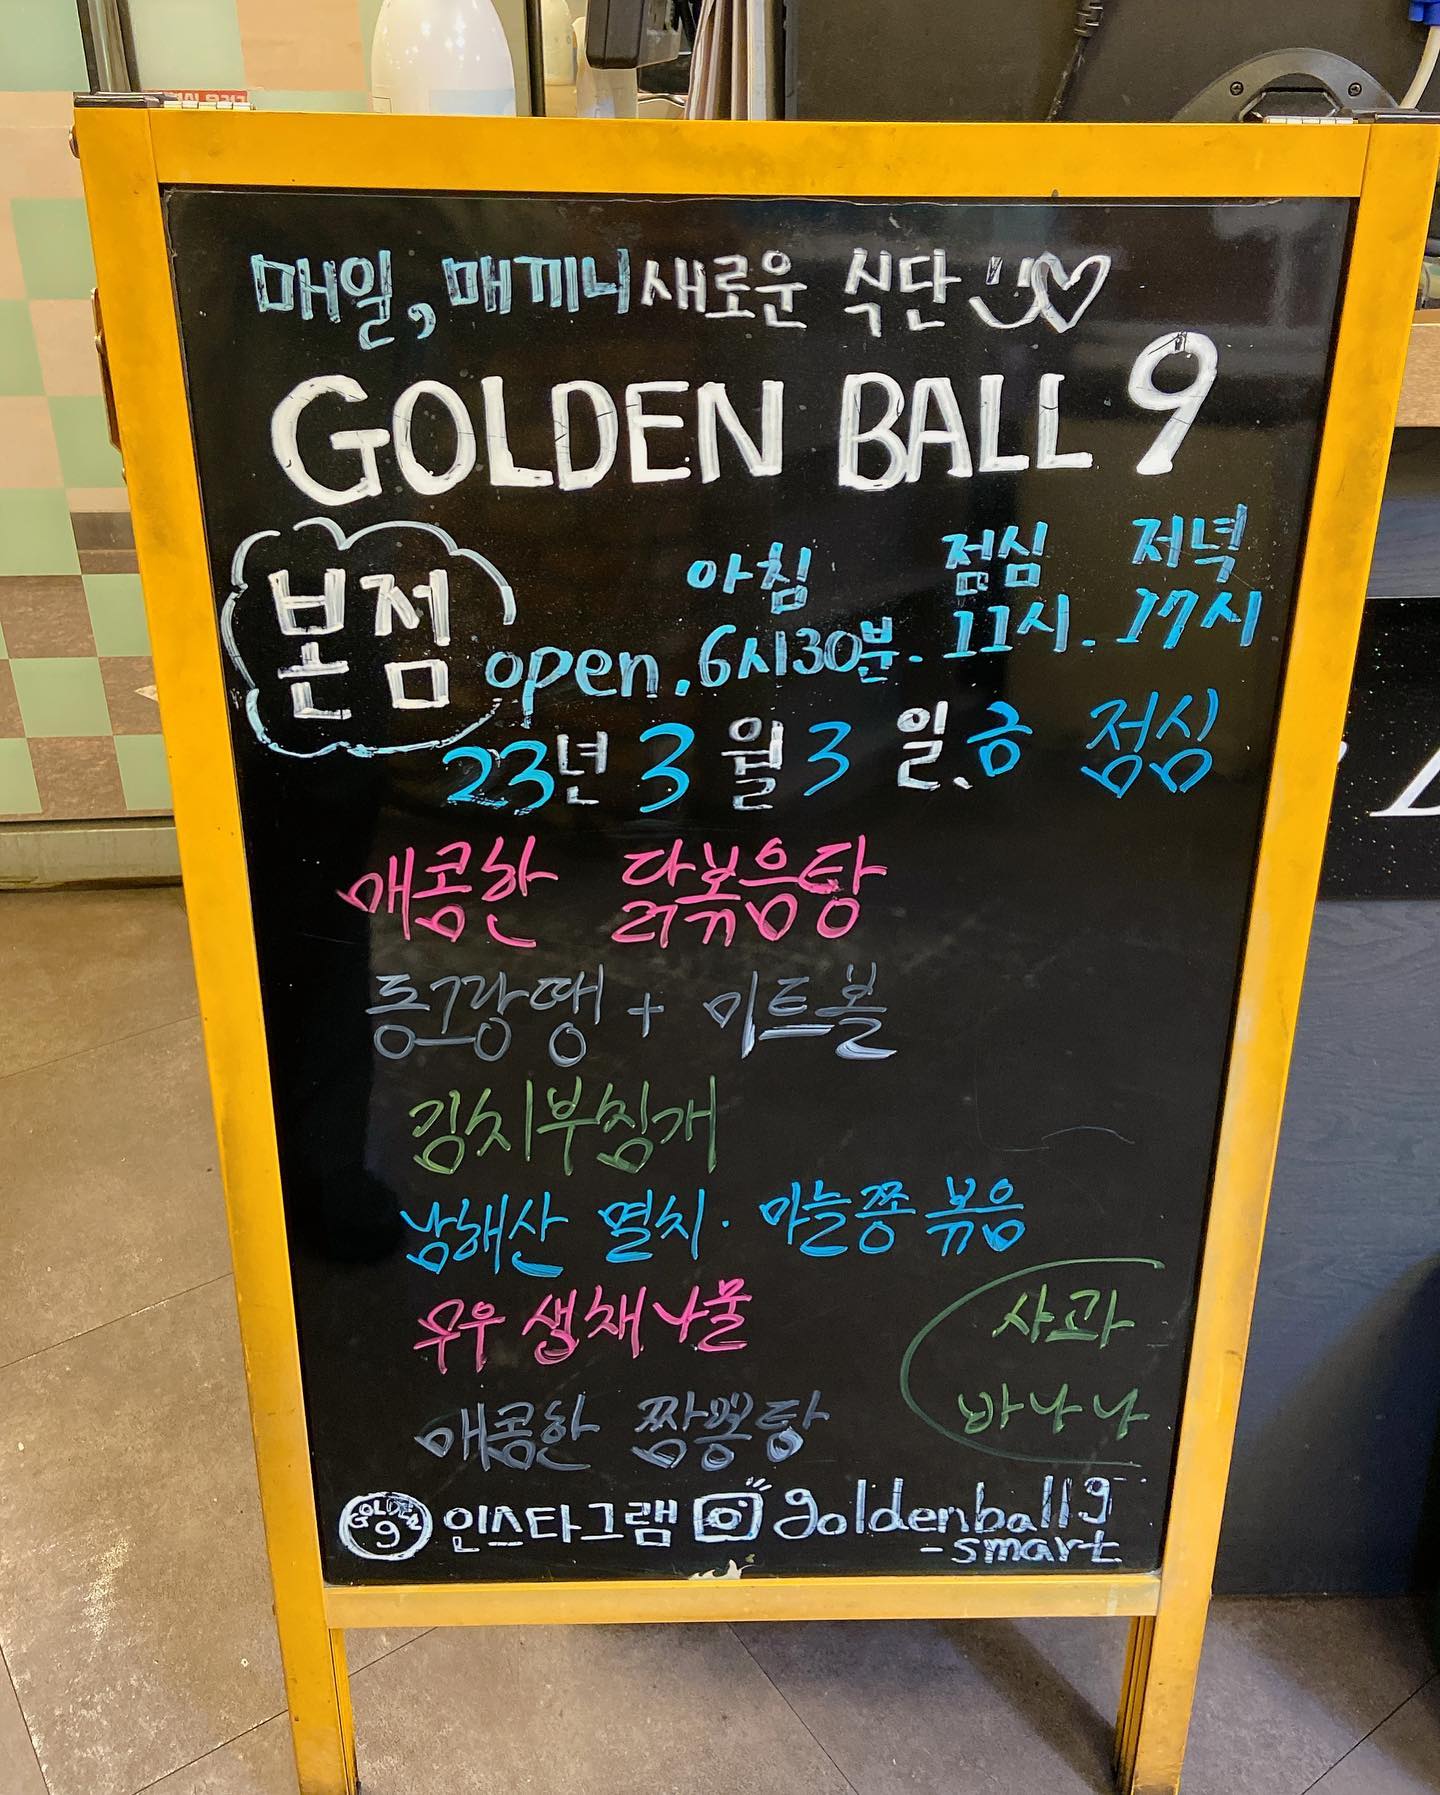 매일, 매끼니 새로운 식단
GOLDEN BALL 9
본점
아침 점심 저녁
open. 6시30분. 11시. 17시
23년 3월 3일. 금 점심
매콤한 닭볶음탕
동그랑땡 + 미트볼
김치부침개
남해산 멸치·마늘쫑볶음
무우생채나물
사과
바나나
매콤한 짬뽕탕
GOLDEN 9 인스타그램 goldenball9
-smart